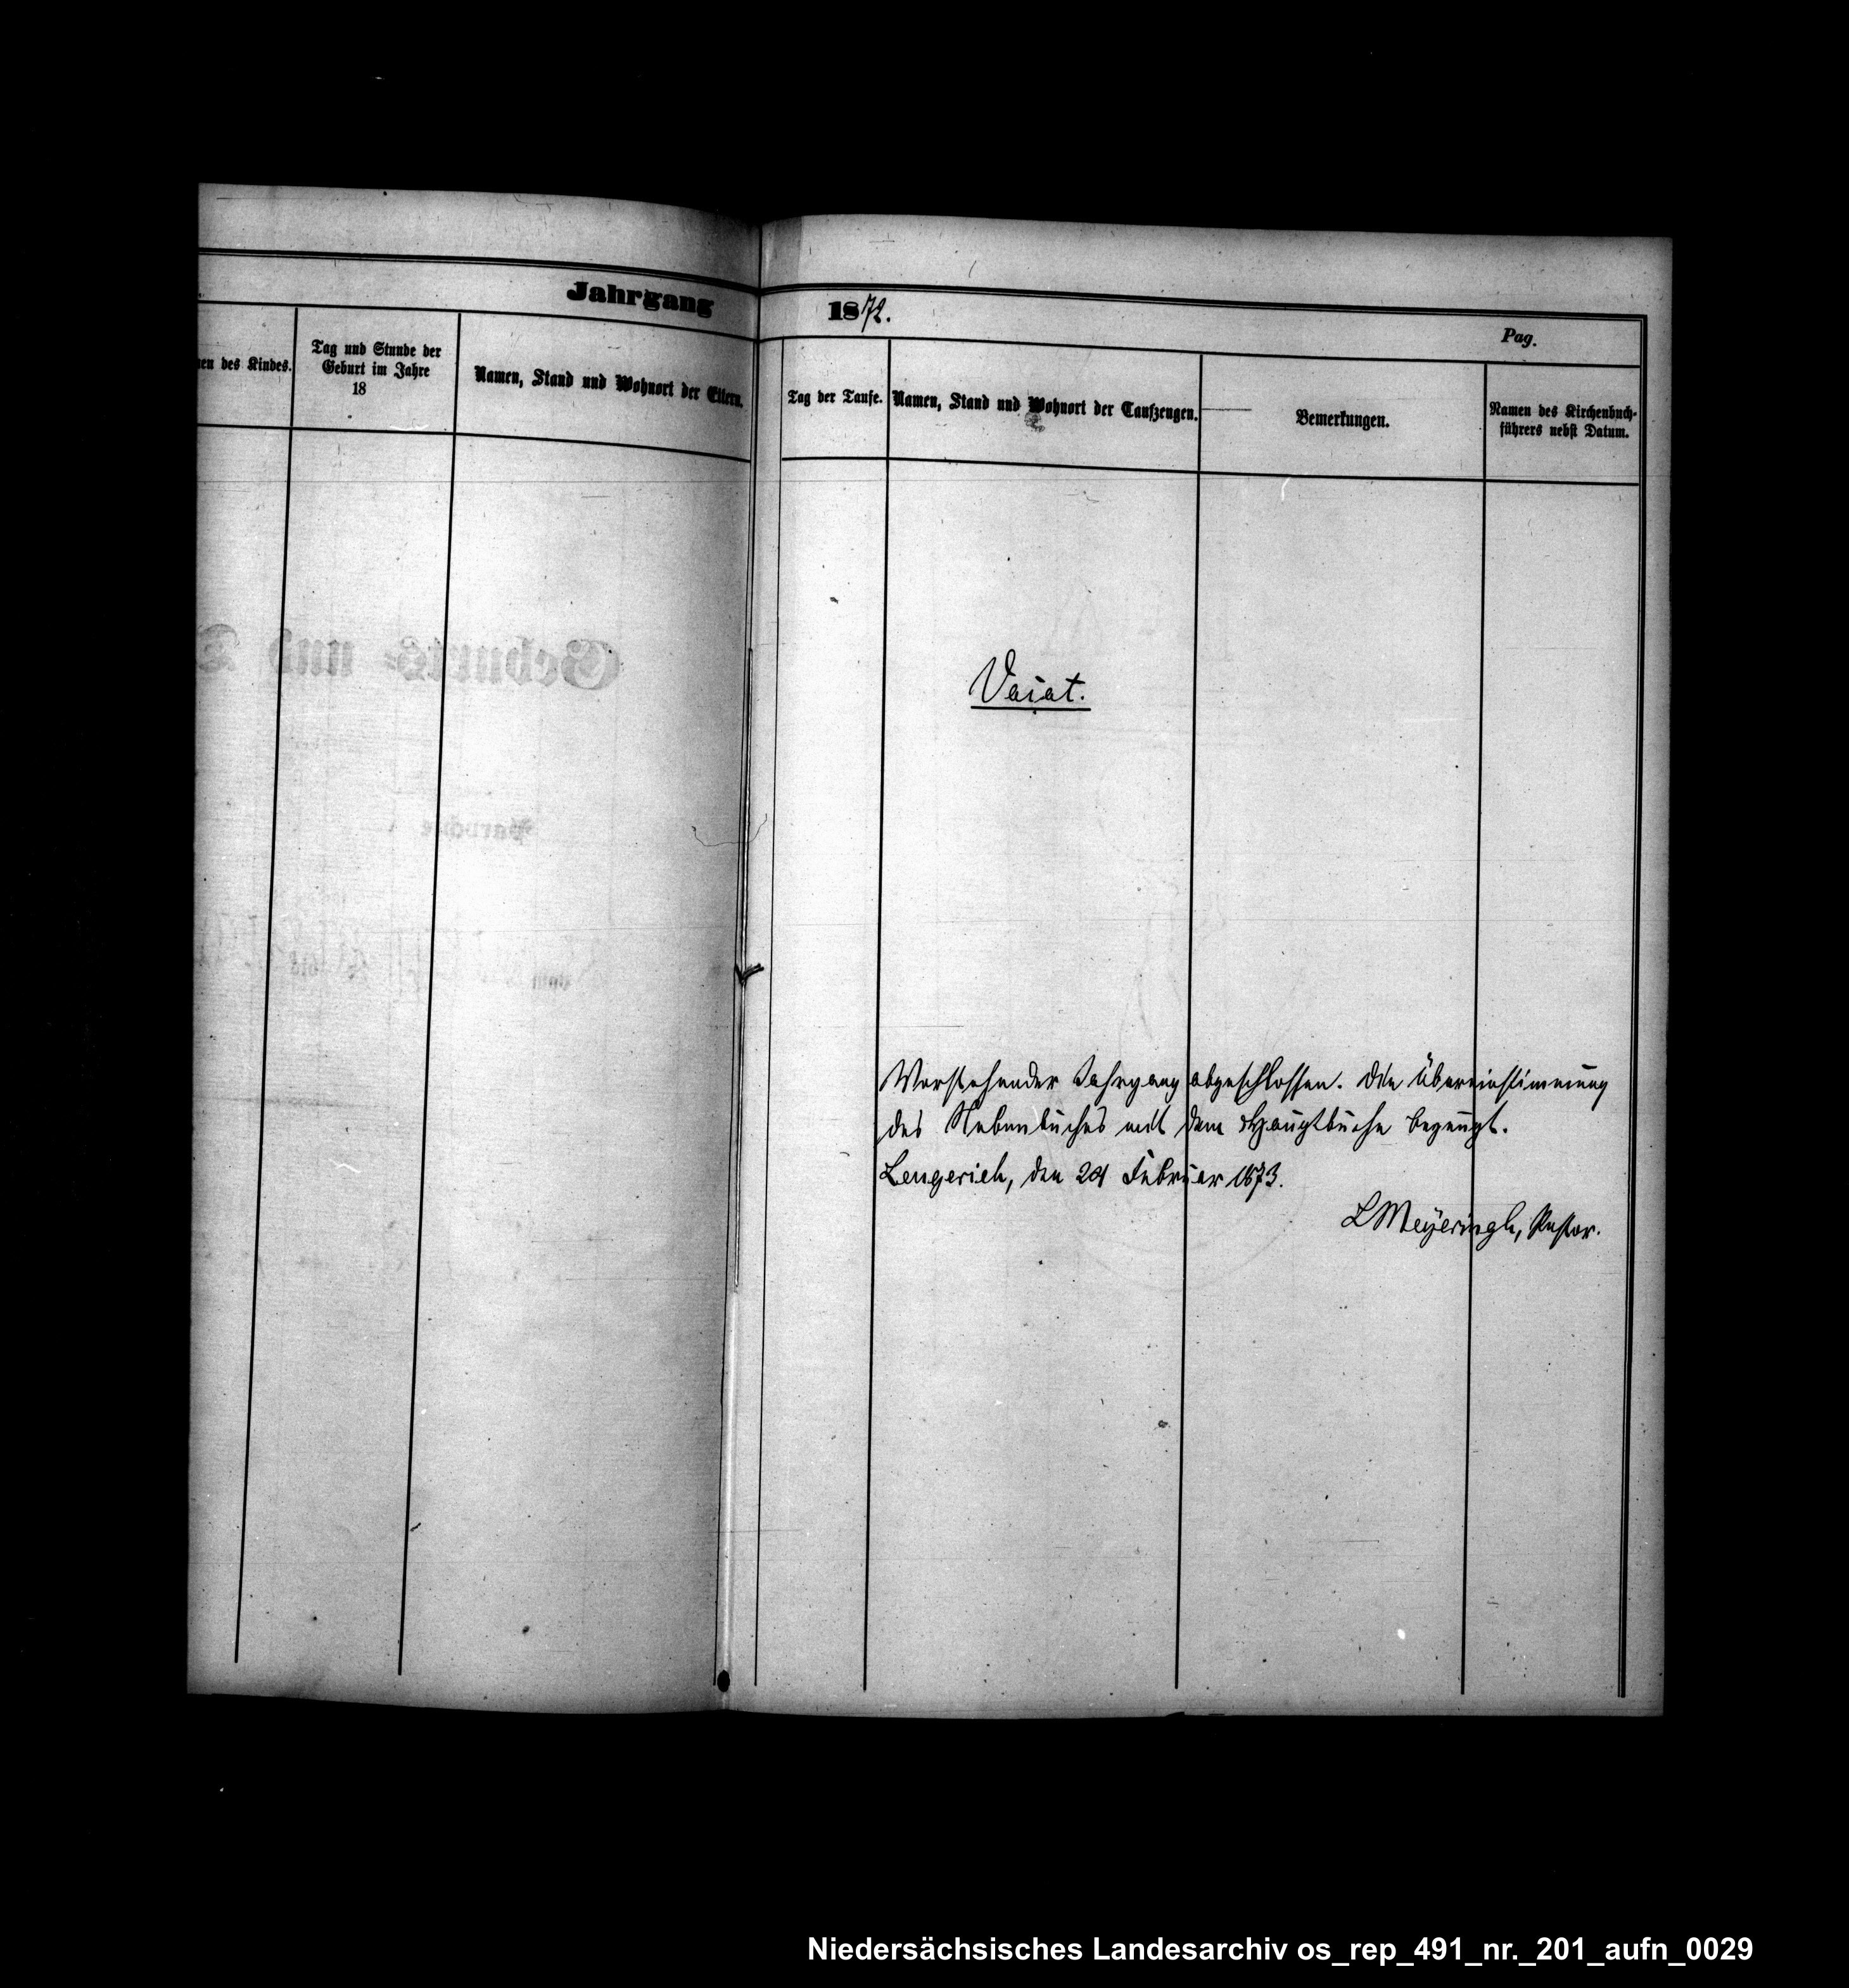 Jahrgang 1872.
Pag.
nen des Kindes.
Tag und Stunde der
Geburt im Jahre
18
Namen, Stand und Wohnort der Eltern.
Tag der Taufe.
Namen, Stand und Wohnort der Taufzeugen.
Bemerkungen.
Namen des Kirchenbuch-
führers nebst Datum.
Vacat.
Vorstehender Jahrgang abgeschlossen. Die Übereinstimmung
des Nebenbuches mit dem Hauptbuche bezeugt.
Lengerich, den Februar 1873.
L Meyeringh, Pastor.
Niedersächsisches Landesarchiv os_rep_491_nr._201_aufn_0029